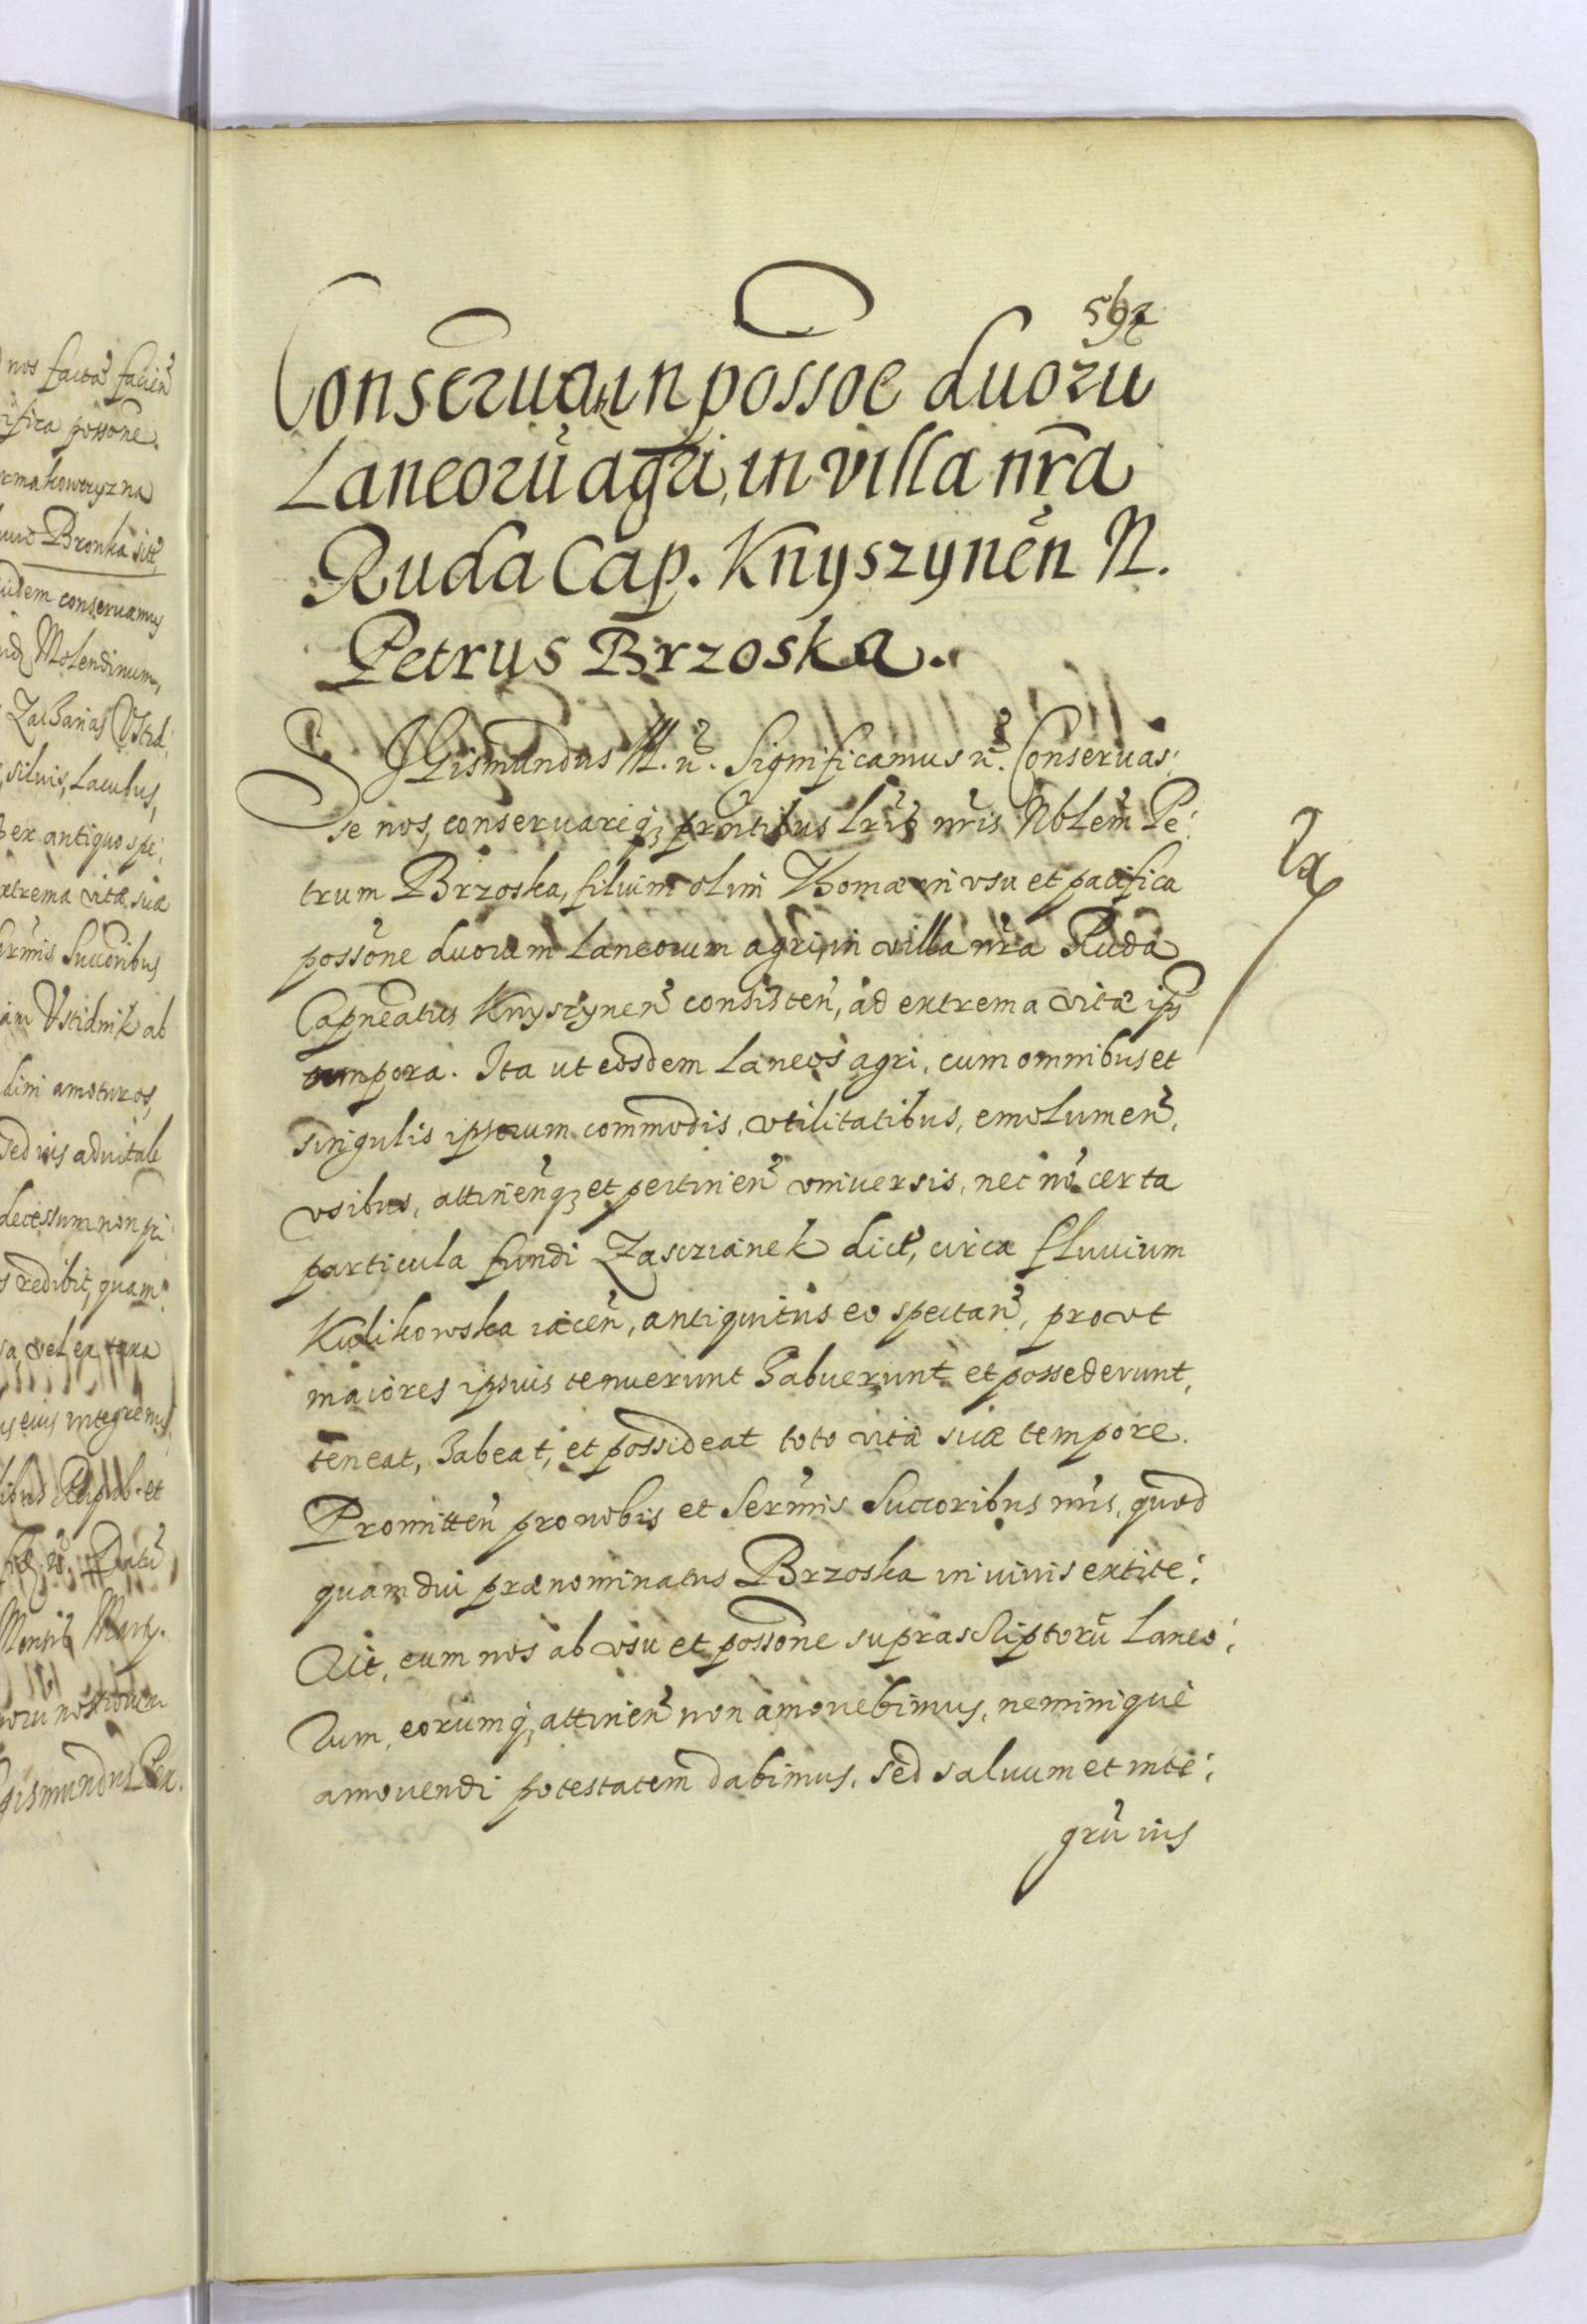 592
Conserua in possoe duorũ
Laneorũ agri, in villa nr̃a
Ruda Cap. Knyszynen̉ N.
Petrus Brzoska.
SJGismundus III. ẻ. Significamus ẻ. Conseruas:
se nos, conseruareq3 pñtibus lrĩs nr̃is Nblem̃ Pe:
trum Brzoska, filium olim Thomæ in vsu et pacifica
possone duorum Laneorum agri, in villa nr̃a Ruda
Capneatus Knyszynen̉ consisten̉, ad extrema vitæ ips
tempora. Ita ut eosdem Laneos agri, cum omnibus et
singulis ipsorum commodis, vtilitatibus, emolumen̉,
vsibus, attinen̉q3 et pertinen̉ vniuersis, nec nõ certa
particula fundi Zascianek dict̉, circa fluuium
Kulikowska iacen̉, antiquitus eo spectan̉, prout
maiores ipsius tenuerunt habuerunt et possederunt,
teneat, habeat, et possideat toto vitæ suæ tempore.
Promitten̉ pro nobis et Serm̃is Succoribus nr̃is, quod
quamdiu prænominatus Brzoska in viuis extite:
rit, eum nos ab vsu et possone suprascriptorũ Laneo:
rum, eorumq3 attinen̉ non amouebimus, neminique
amouendi potestatem dabimus, sed saluum et inte:
grũ ius
nos factã facien̉
possone.
Bronka sitẻ
conseruamus
Molendinum,
siluis, Lacubus,
ex antiquo spe:
extrema vitæ, suæ
Succoribus
Vscidnik ab
amoturos,
sed ius aduitale
decessum non pri:
redibit, quam
vel ex
eius integre
et
Datũ
Mensis Marty.